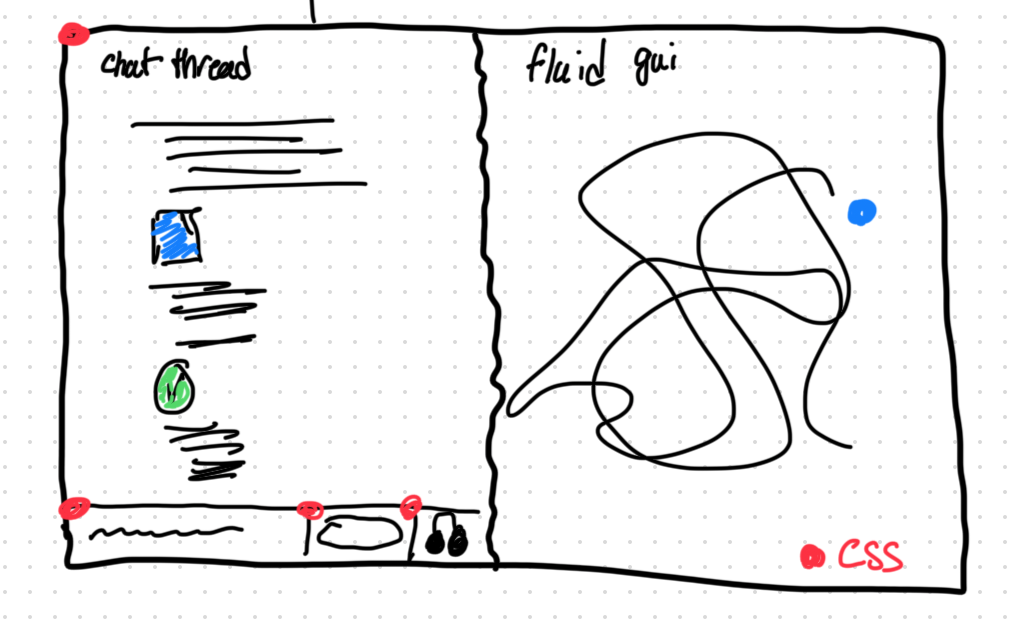 chat thread
fluid gui
CSS